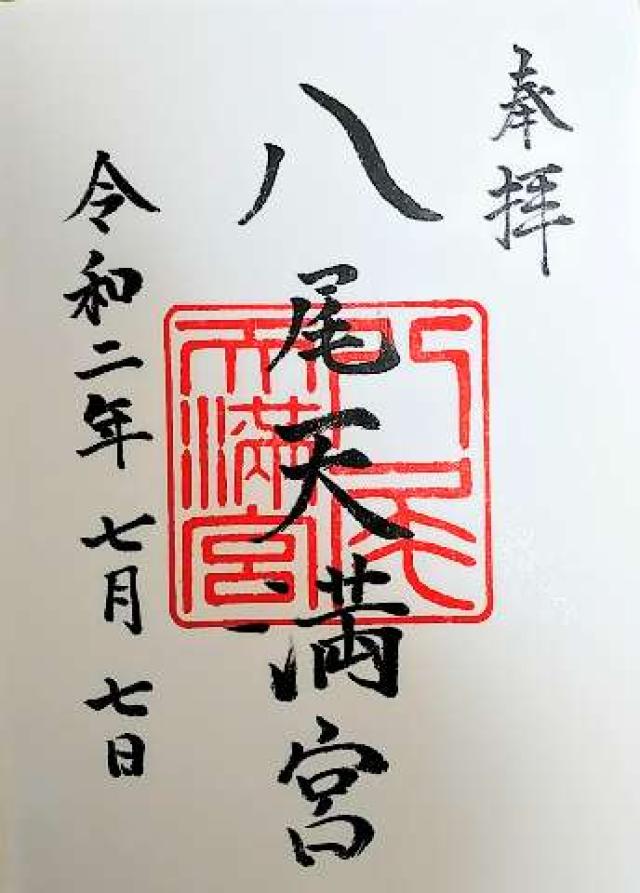 奉拝
八尾天満宮
令和二年七月七日
八尾
天満宮